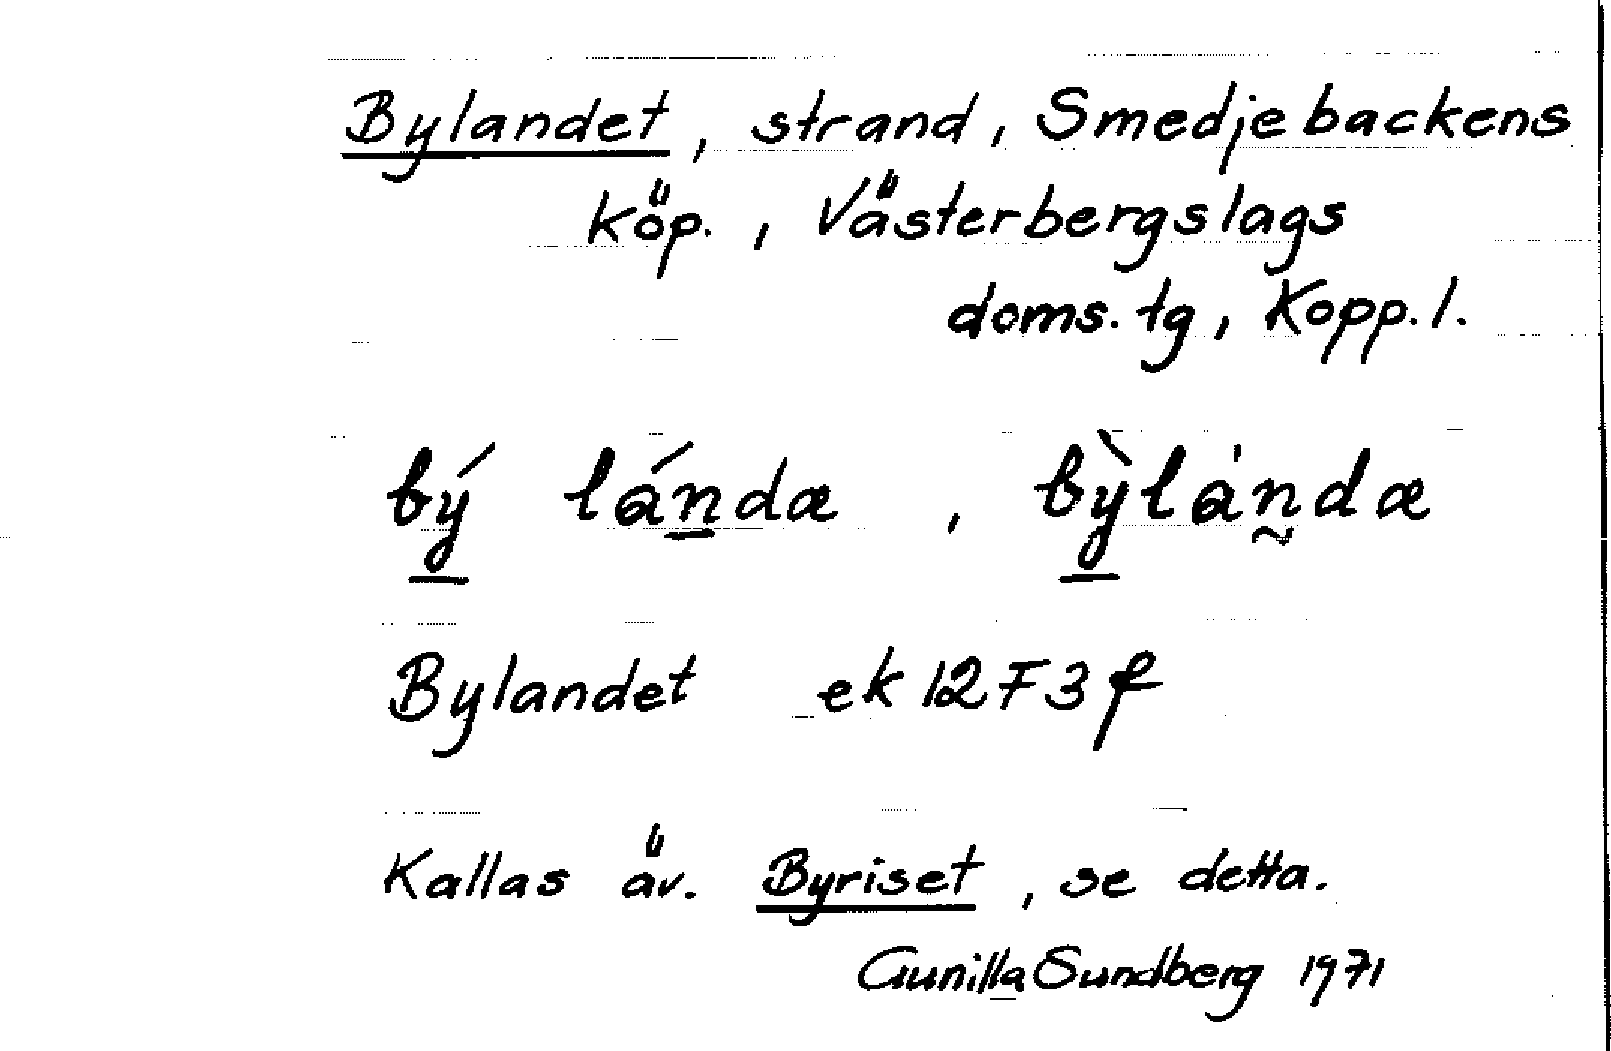 Bylandet, strand, Smedjebackens
Köp., Västerbergslags
doms.tg, Kopp.l.
bý lándæ, bỳlȧndæ
Bylandet ek 12F3f
Kallas äv. Byriset, se detta.
Gunilla Sundberg 1971